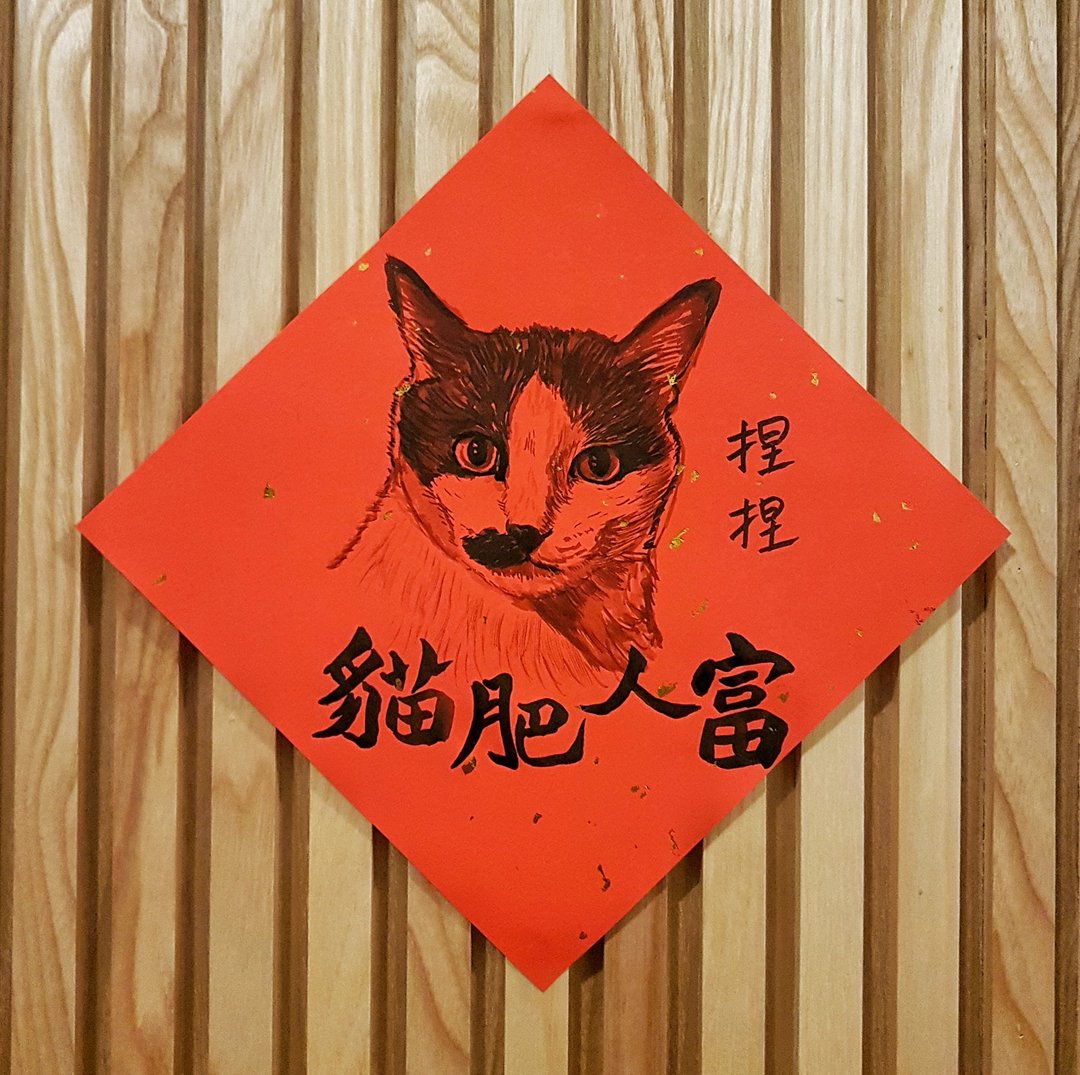 捏捏
貓肥人富